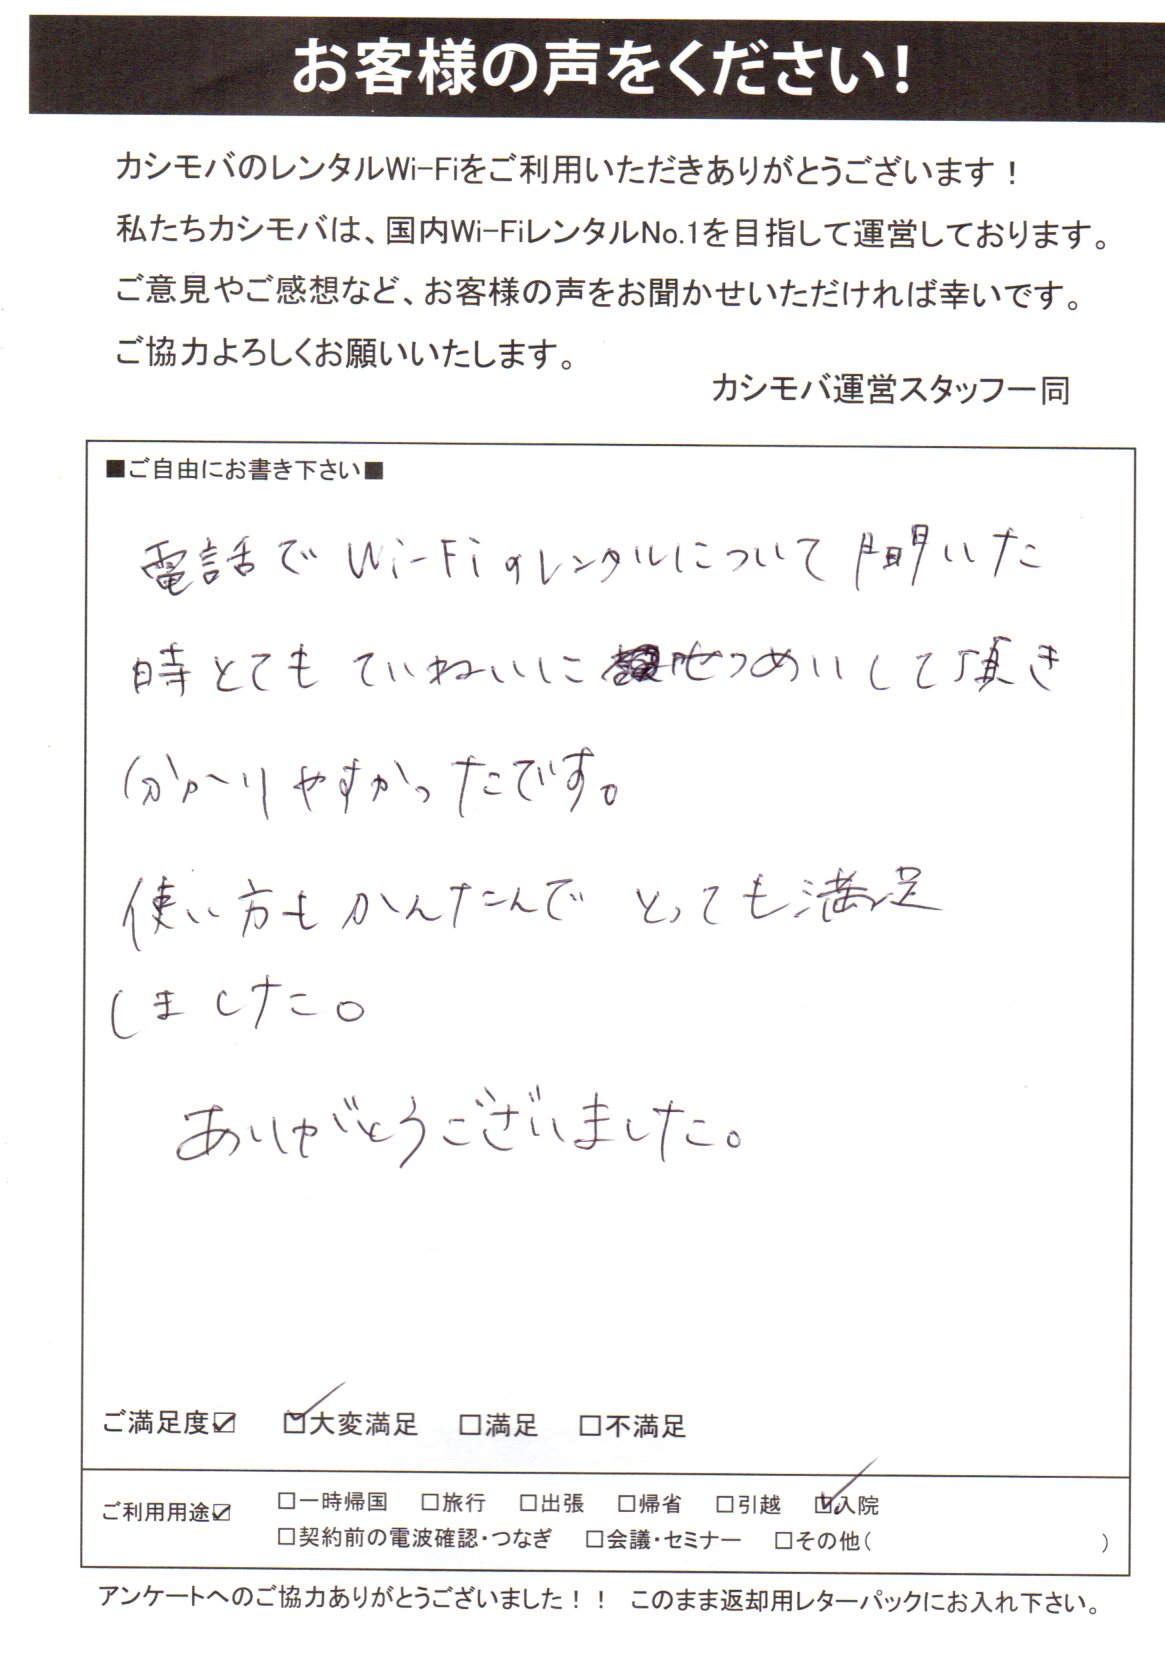 お客様の声をください!
カシモバのレンタルWi-Fiをご利用いただきありがとうございます！
私たちカシモバは、国内Wi-FiレンタルNo.1を目指して運営しております。
ご意見やご感想など、お客様の声をお聞かせいただければ幸いです。
ご協力よろしくお願いいたします。
カシモバ運営スタッフ一同
■ご自由にお書き下さい■
電話で Wi-Fiのレンタルについて 聞いた
時とても ていねいに せつめいして頂き
分かりやすかったです。
使い方もかんたんで とっても満足
しました。
ありがとうございました。
ご満足度☑ ☑大変満足 □満足 □不満足
ご利用用途☑ □一時帰国 □旅行 □出張 □帰省 □引越 ☑入院
□契約前の電波確認・つなぎ □会議・セミナー □その他( )
アンケートへのご協力ありがとうございました！！ このまま返却用レターパックにお入れ下さい。